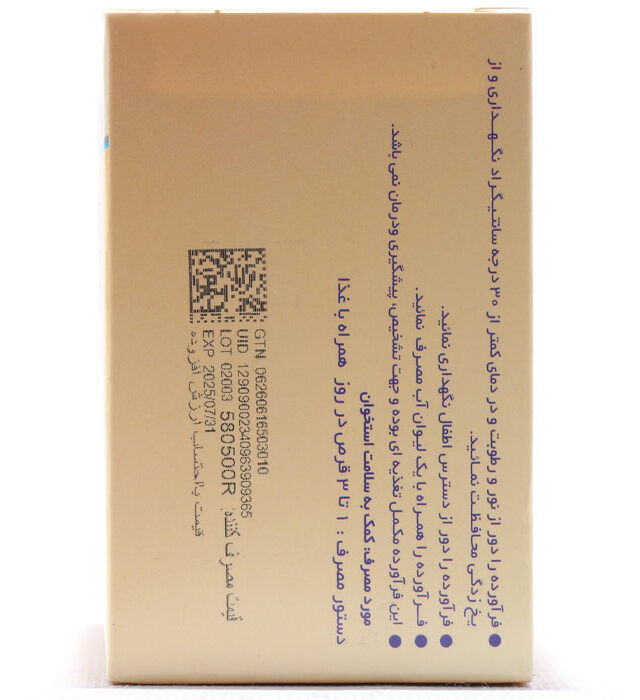 فرآورده را دور از نور و رطوبت و در دمای کمتر از ۳۰ درجه سانتیگراد نگهداری و از
یخ زدگی محافظت نمائید.
فرآورده را دور از دسترس اطفال نگهداری نمائید.
فرآورده را همراه با یک لیوان آب مصرف نمائید.
این فرآورده مکمل تغذیه ای بوده و جهت تشخیص، پیشگیری ودرمان نمی باشد.
مورد مصرف: کمک به سلامت استخوان
دستور مصرف : ۱ تا ۳ قرص در روز همراه با غذا
GTN 06260616503010
UID 12909002340963909365
LOT 02003 580500R قیمت مصرف کننده:
EXP 2025/07/31
قیمت بااحتساب ارزش افزوده